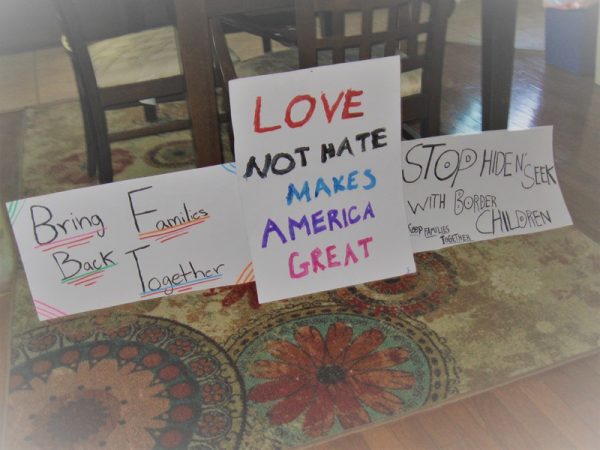 Bring Families
Back Together
LOVE
NOT HATE
MAKES
AMERICA
GREAT
STOP HIDE N' SEEK
WITH BORDER
CHILDREN
KEEP FAMILIES
TOGETHER